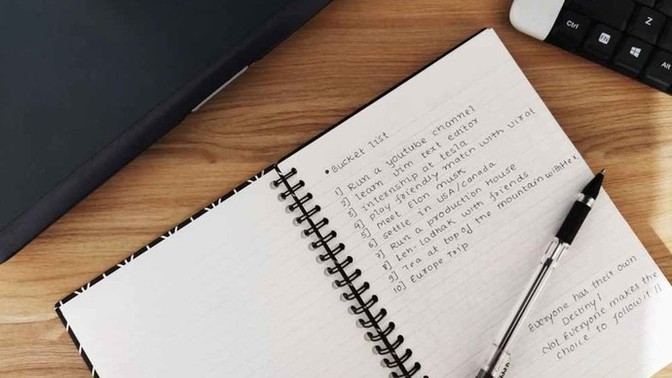 • Bucket list
1] Run a youtube channel
2] learn vim text editor
3] internship at tesla
4] play friendly match with viral
5] Meet Elon musk
6] settle in USA/Canada
7] Run a production House
8] Leh-ladhak with friends
9] Tea at top of the mountain
10] Europe Trip
Everyone has their own
Destiny!
Not Everyone makes the
choice to follow it!!
Z
Ctrl
FN
Alt